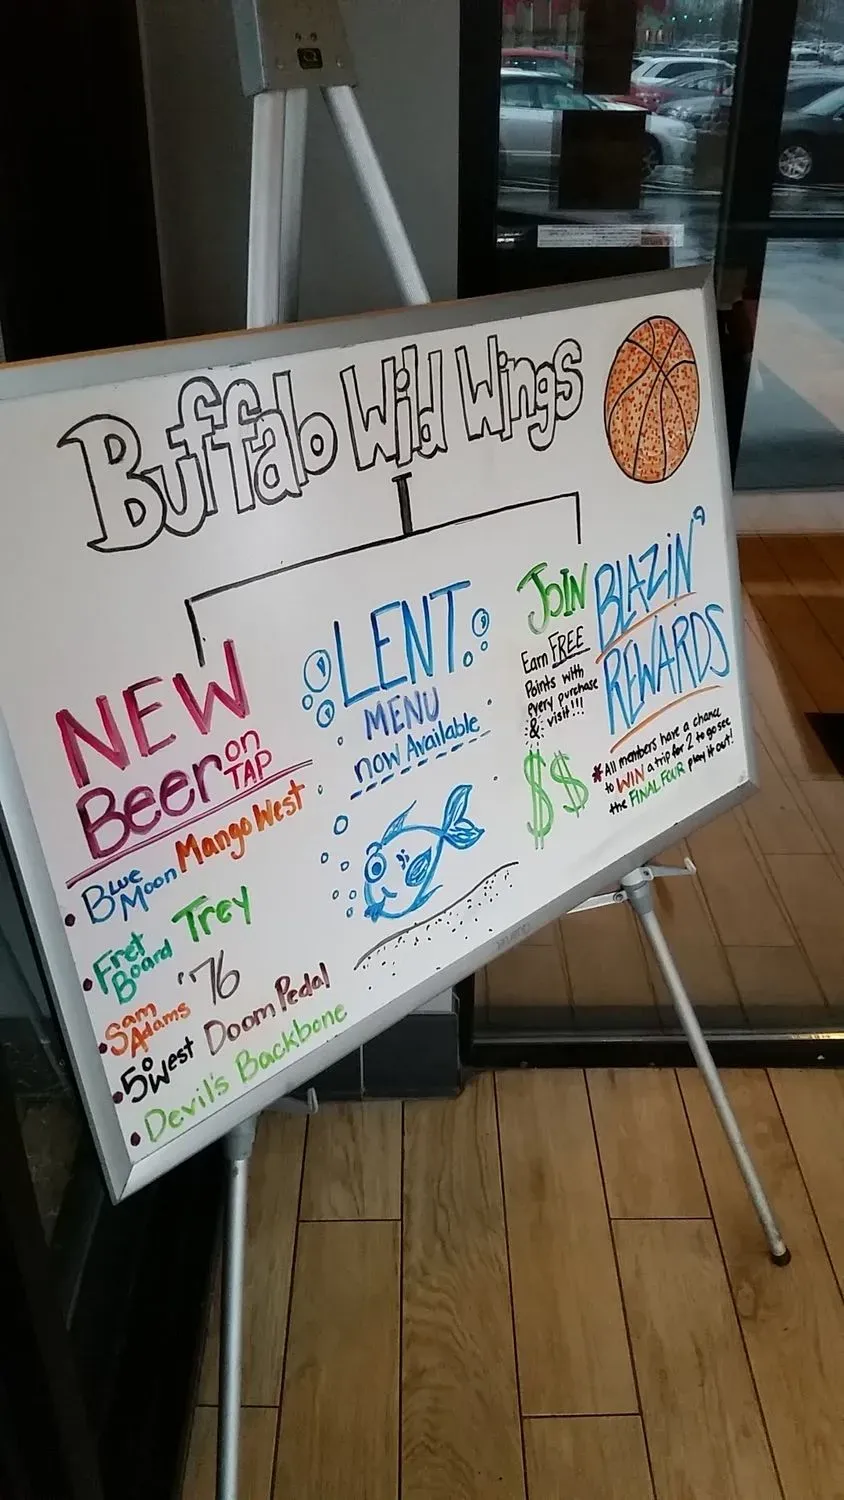 Buffalo Wild Wings
NEW
Beer on
TAP
• Blue Moon Mango West
• Fret Board Trey
• Sam Adams '76
• 50 West Doom Pedal
• Devil's Backbone
LENT
MENU
now Available
JOIN
BLAZIN'
REWARDS
Earn FREE
Points with
every purchase
& visit!!!
$$
*All members have a chance
to WIN a trip for 2 to go see
the FINAL FOUR play it out!